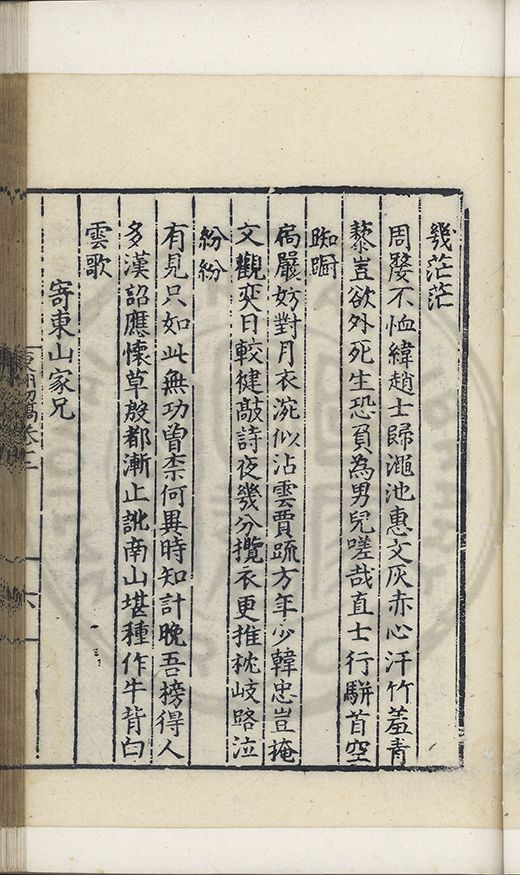 幾茫茫
周嫠不恤緯趙士歸澠池惠文灰赤心汗竹羞青
藜豈欲外死生恐負為男兒嗟哉直士行駢首空
踟躕
病嚴妨對月衣涴似沾雲賈疏方年少韓忠豈掩
文觀奕日較健敲詩夜幾分攬衣更推枕岐路泣
紛紛
有見只如此無功曾柰何異時知計晚吾榜得人
多漢詔應懷草殷都漸止訛南山堪種作牛背白
雲歌
寄東山家兄